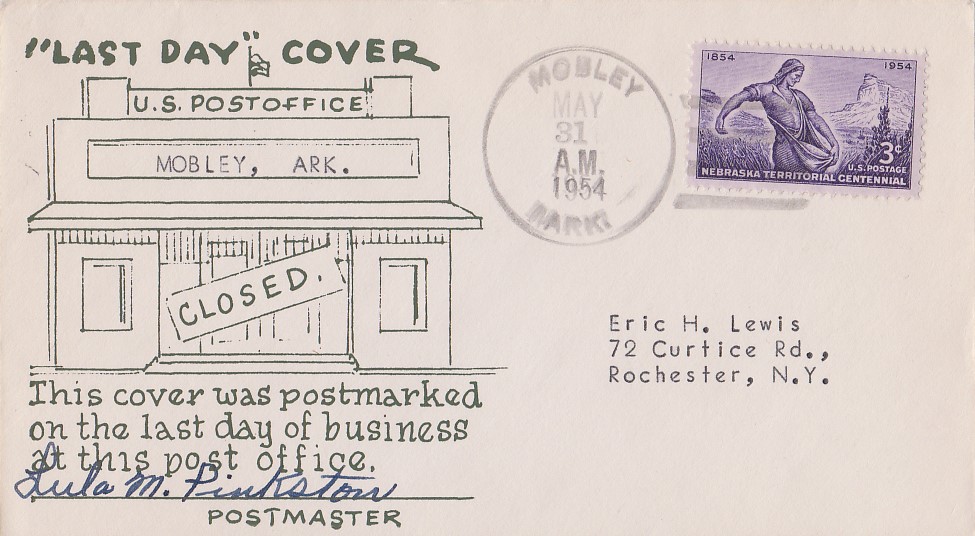 "LAST DAY" COVER
U.S. POSTOFFICE
MOBLEY, ARK.
CLOSED.
This cover was postmarked
on the last day of business
at this post office.
Lula M. Pinkston
POSTMASTER
MOBLEY
MAY
31
A.M.
1954
ARK.
1854 1954
3¢
U.S. POSTAGE
NEBRASKA TERRITORIAL CENTENNIAL
Eric H. Lewis
72 Curtice Rd.,
Rochester, N.Y.